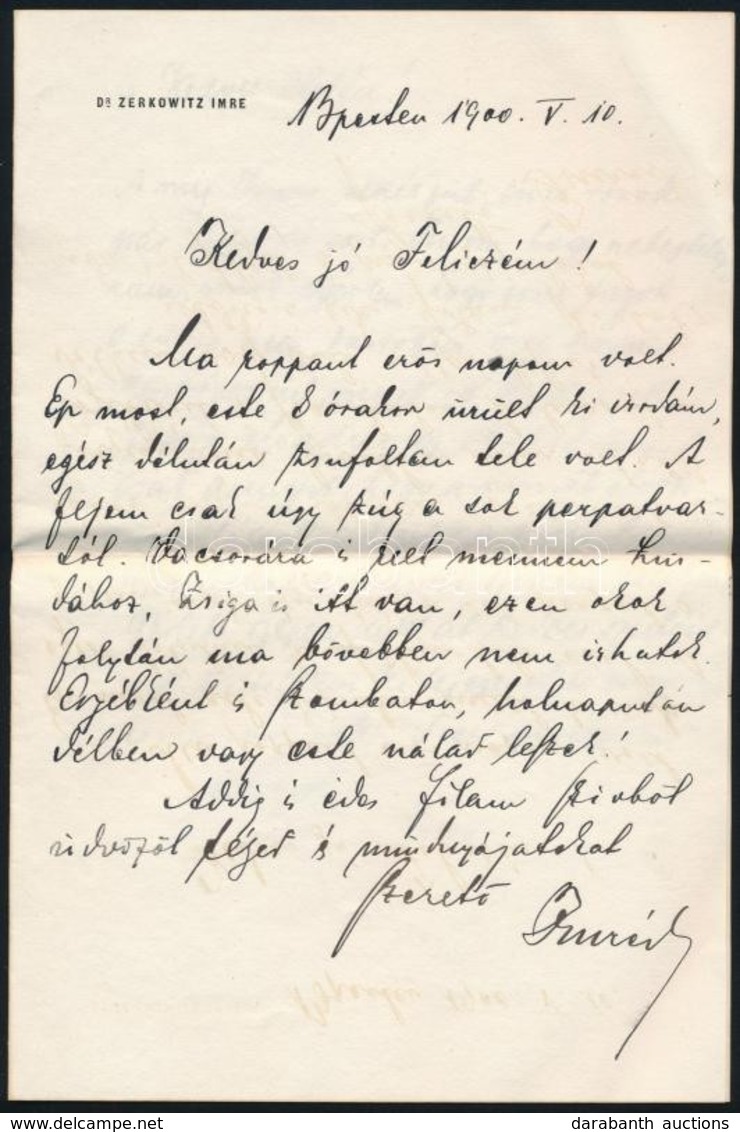 DR ZERKOWITZ IMRE
Bpesten 1900. V. 10.
Kedves jó Feliczém!
Ma roppant erős napom volt.
Ép most, este 8 órakor ürült ki irodám,
egész délután zsufoltan tele volt. A
fejem csak úgy zúg a sok perpatvar-
tól. Vacsorára is kell mennem Lin-
dához, Zsiga is itt van, ezen okok
folytán ma bővebben nem irhatok.
Egyébként is szombaton, holnapután
délben vagy este nálad leszek!
Addig is édes Filam szivből
üdvözöl téged és mindnyájatokat
szerető
Imréd
darabanth
darabanth auctions